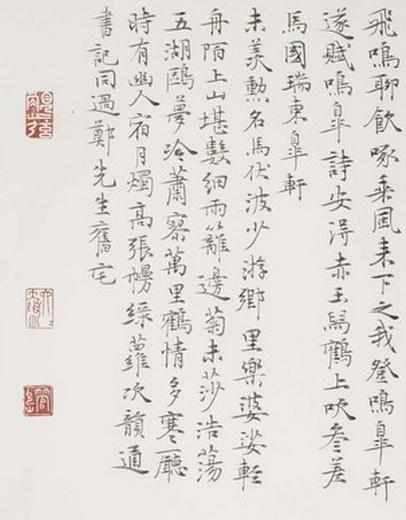 飛鳴聊飲啄乘風來下之我登鳴皐軒
遂賦鳴皐詩安得赤玉舄鶴上吹參差
馬國瑞東皐軒
未羡勳名馬伏波少游鄉里樂婆娑輕
舟陌上山堪數細雨籬邊菊未莎浩蕩
五湖鷗夢冷蕭寥萬里鶴情多寒廳
時有幽人宿月燭高張幔綠蘿次韻通
書記同過鄭先生舊宅